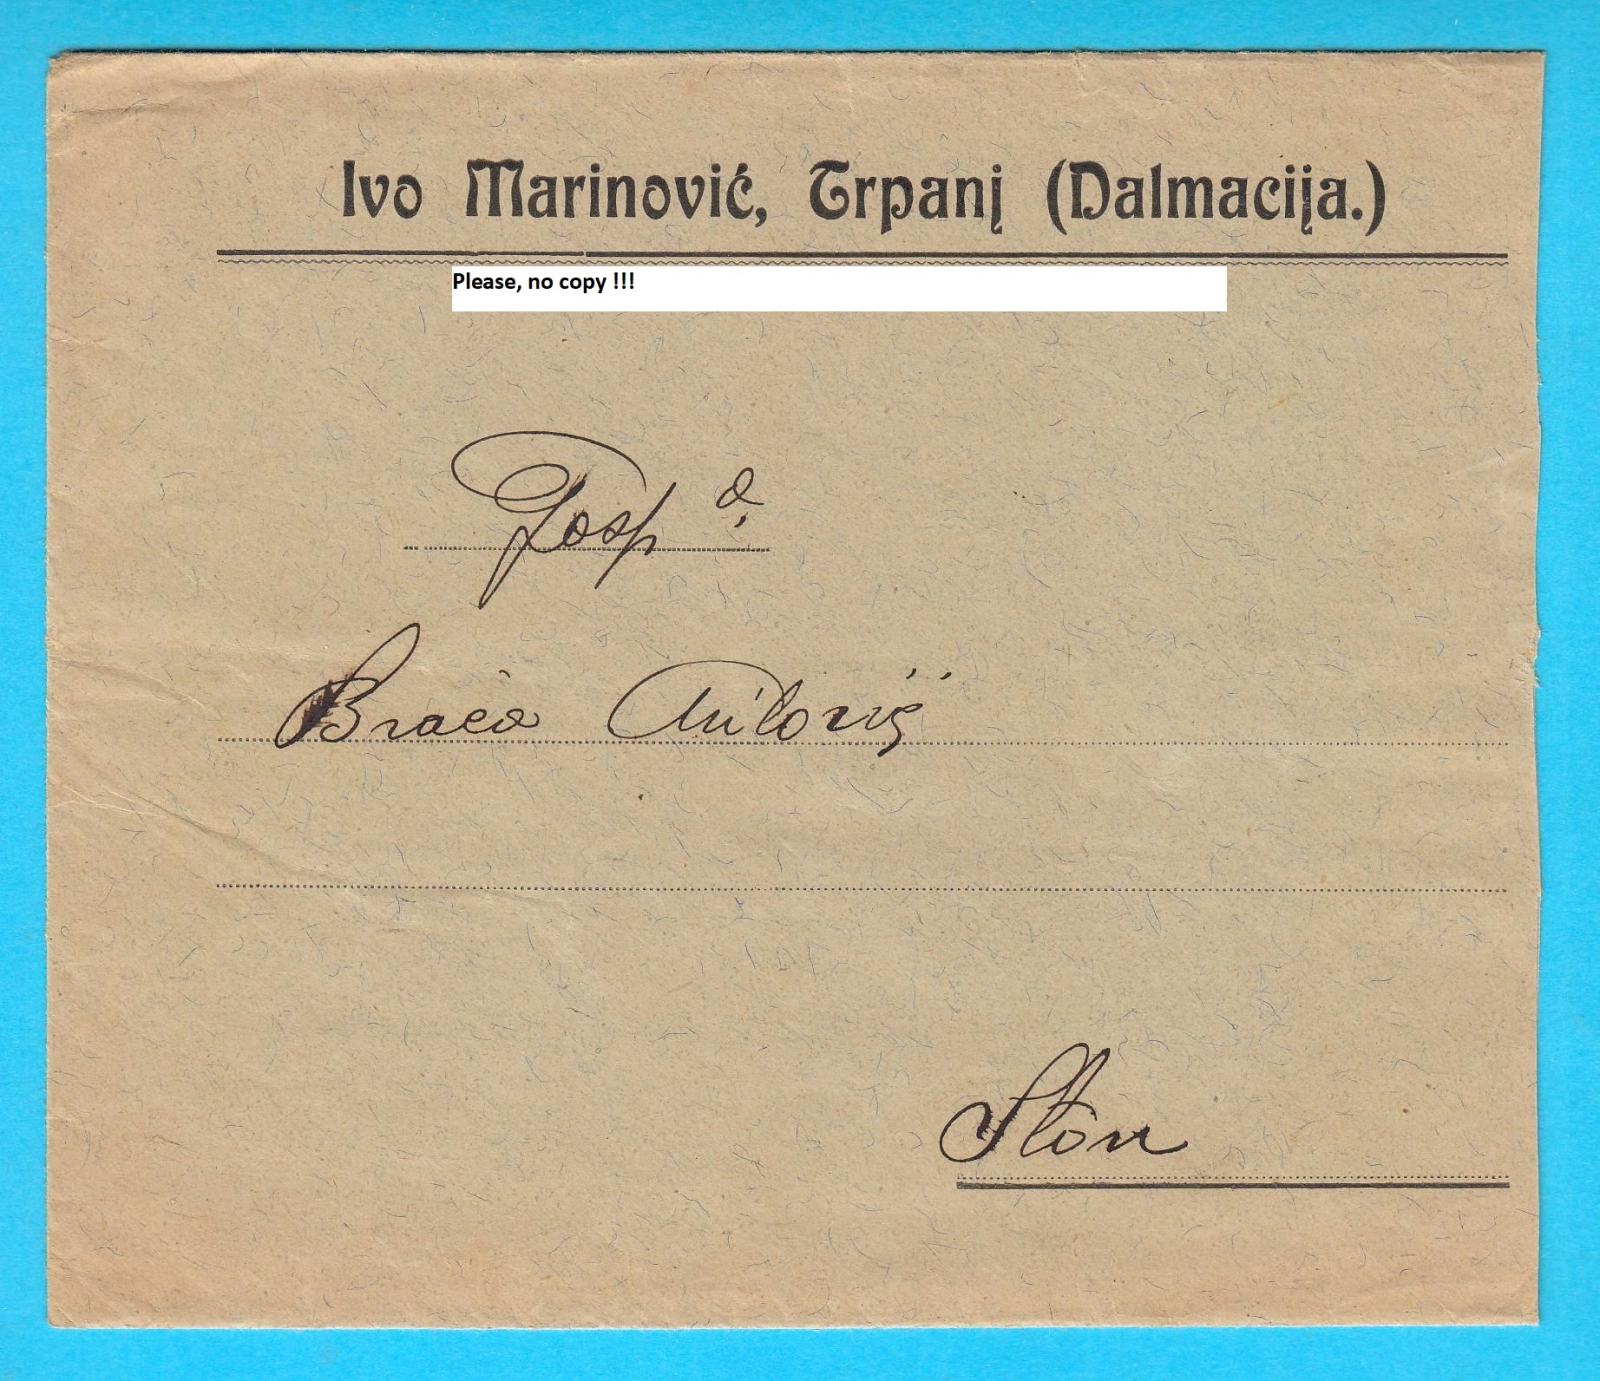 Ivo Marinović, Trpanj (Dalmacija.)
Please, no copy !!!
Gosp a.
Braća Milović
Ston